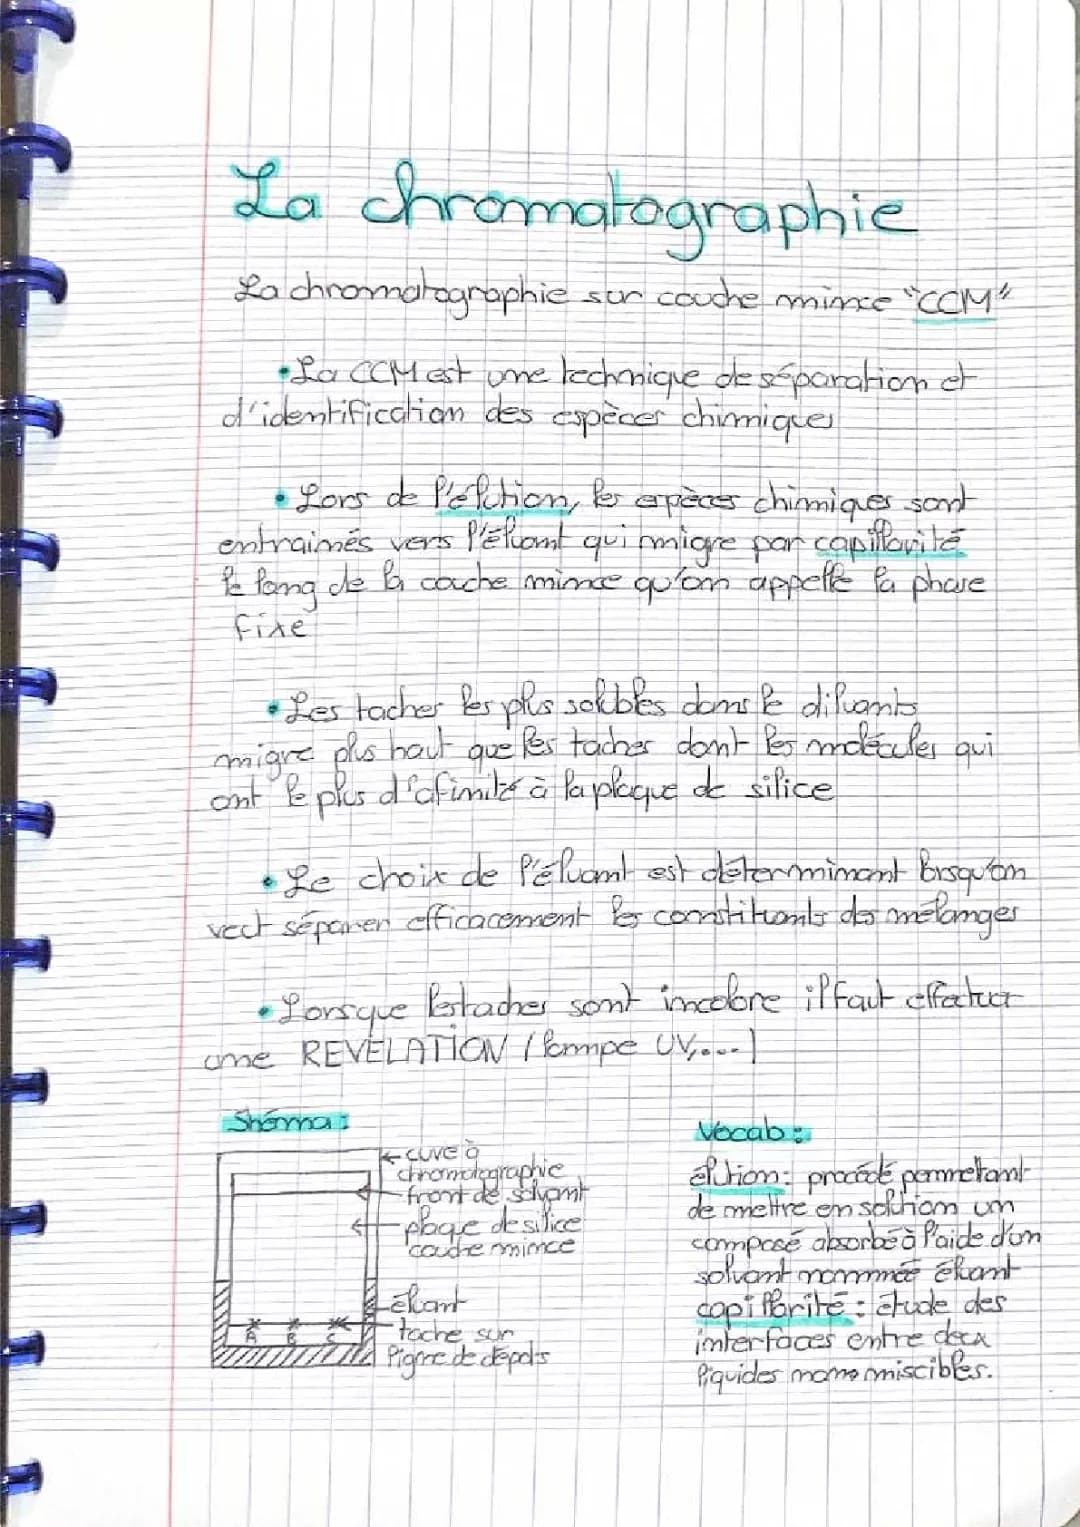 La chromatographie
La chromatographie sur couche mince "CCM"
•La CCM est une technique de séparation et
d'identification des espèces chimiques
• Lors de l'élution, les espèces chimiques sont
entrainés vers l'éluant qui migre par capillarité
le long de la couche mince qu'on appelle la phase
fixe
• Les taches les plus solubles dans le diluants
migre plus haut que les taches dont les molécules qui
ont le plus d'afinités à la plaque de silice
• Le choix de l'éluant est déterminant lorsqu'on
veut séparer efficacement les constituants des mélanges
• Lorsque les taches sont incolore il faut effectuer
une REVELATION (lampe UV,...)
Shéma :
cuve à
chromotographie
front de solvant
plaque de silice
couche mince
éluant
tache sur
ligne de dépots
A B C
Vocab :
élution : procédé permettant
de mettre en solution un
composé absorbé à l'aide d'un
solvant nommée éluant
capillarité : étude des
interfaces entre deux
liquides non miscibles.